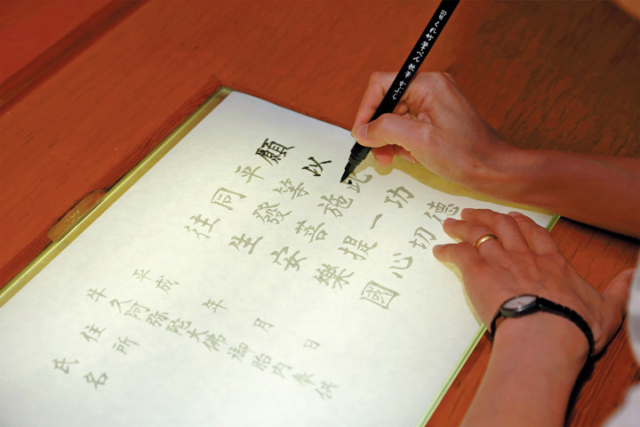 願以此功德
平等施一切
同發菩提心
往生安樂國
平成 年 月 日
牛久阿弥陀大佛御胎内奉供
住所
氏名